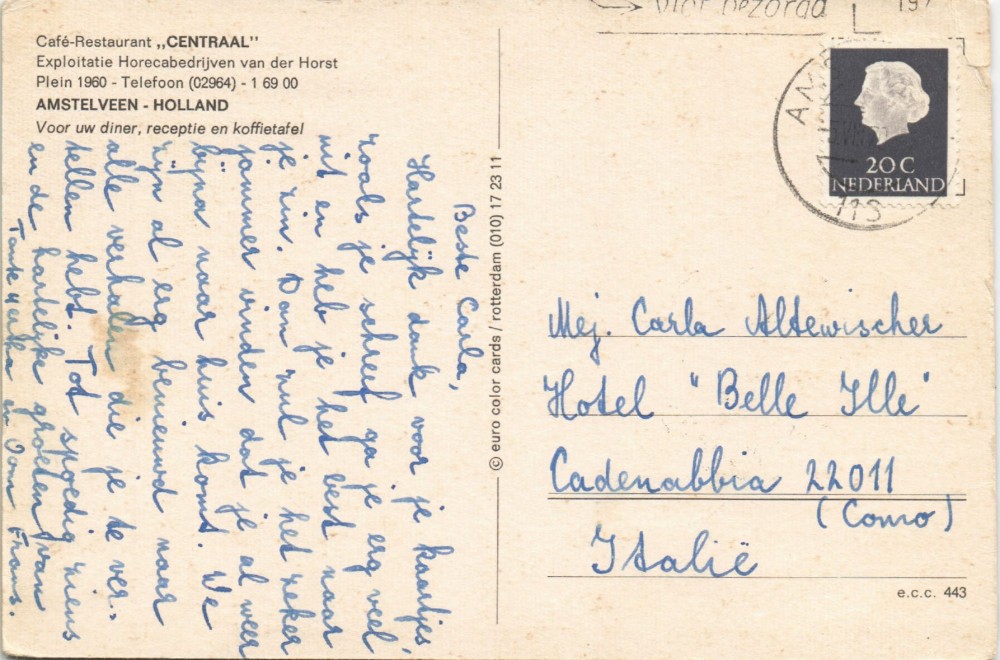 Café-Restaurant „CENTRAAL"
Exploitatie Horecabedrijven van der Horst
Plein 1960 - Telefoon (02964) - 1 69 00
AMSTELVEEN - HOLLAND
Voor uw diner, receptie en koffietafel
Beste Carla,
Hartelijk dank voor je kaartjes,
zoals je schreef ga je erg veel
uit en heb je het best naar
je zin. Dan zul je het zeker
jammer vinden dat je al weer
bijna naar huis komt. We
zijn al erg benieuwd naar
alle verhalen die je te ver-
tellen hebt. Tot spoedig ziens
en de hartelijke groeten van
en Oom Frans.
© euro color cards / rotterdam (010) 17 23 11
bezorgd
197
AM
20 C
NEDERLAND
Mej. Carla Altewischer
Hotel "Belle Ille"
Cadenabbia 22011
(Como)
Italië
e.c.c. 443